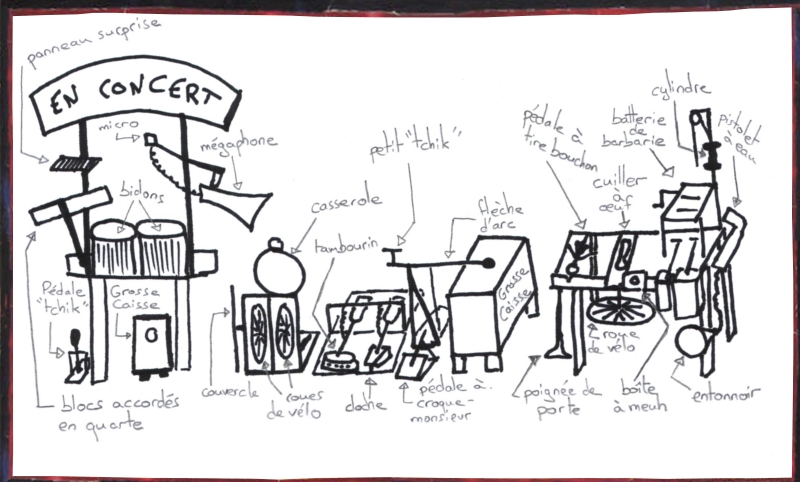 panneau surprise
EN CONCERT
micro
mégaphone
bidons
Pédale
"tchik"
Grosse
Caisse
blocs accordés
en quarte
casserole
tambourin
petit "tchik"
flèche
d'arc
Grosse
Caisse
couvercle
roues
de vélo
cloche
pédale à
croque-
monsieur
pédale à
tire bouchon
cuiller
à
œuf
batterie
de
barbarie
cylindre
Pistolet
à eau
roue
de vélo
poignée de
porte
boîte
à meuh
entonnoir